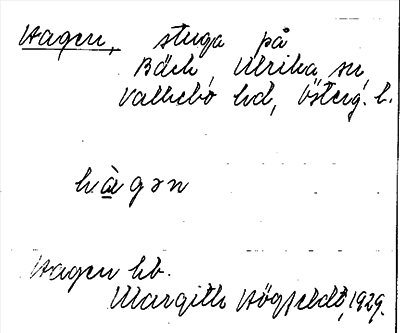 Hagen, stuga på
Bäck, Ulrika sn,
Valkebo hd, Österg. l.
hàgən
Hagen hb.
Margith Högfeldt, 1929.